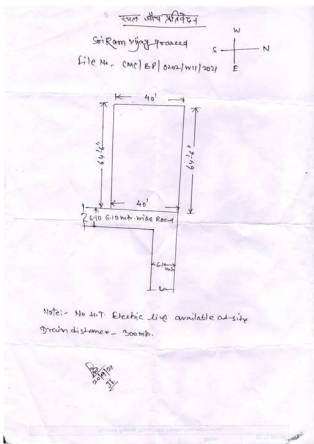 स्थल जाँच प्रतिवेदन
Sri Ram Vijay Prasad
File No. - CMC/BP/0202/W11/2021
W
S
N
E
40'
64'-6"
64'-6"
40'
6.10
6.10 mt. wide Road
6.10 mt.
Note:- No H.T. Electric live available at site
Drain distance - 300 mt.